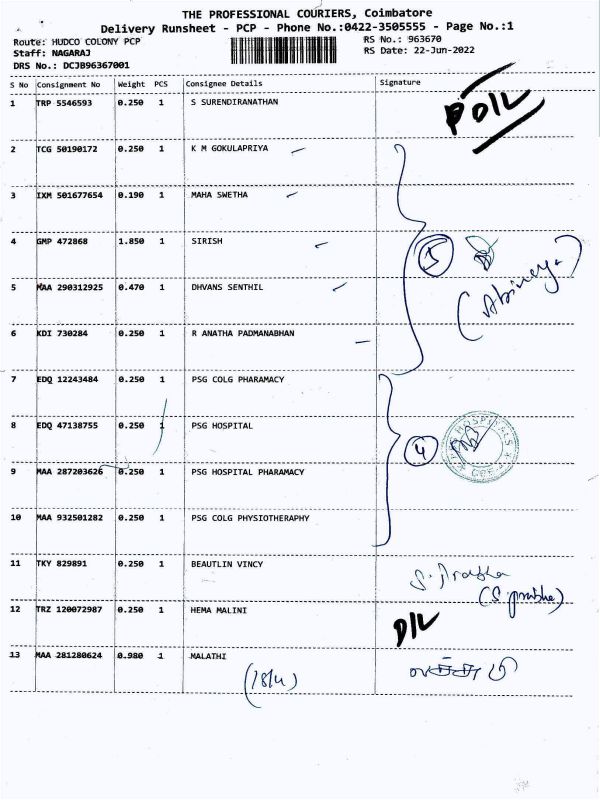 THE PROFESSIONAL COURIERS, Coimbatore
Delivery Runsheet - PCP - Phone No.:0422-3505555 - Page No.:1
Route: HUDCO COLONY PCP
Staff: NAGARAJ
DRS No.: DCJB96367001
RS No.: 963670
RS Date: 22-Jun-2022
S No Consignment No Weight PCS Consignee Details Signature
1 TRP 5546593 0.250 1 S SURENDIRANATHAN
2 TCG 50190172 0.250 1 K M GOKULAPRIYA
3 IXM 501677654 0.190 1 MAHA SWETHA
4 GMP 472868 1.850 1 SIRISH
5
5 MAA 290312925 0.470 1 DHVANS SENTHIL
6 KDI 730284 0.250 1 R ANATHA PADMANABHAN
7 EDQ 12243484 0.250 1 PSG COLG PHARAMACY
8 EDQ 47138755 0.250 1 PSG HOSPITAL
4
9 MAA 287203626 0.250 1 PSG HOSPITAL PHARAMACY
10 MAA 932501282 0.250 1 PSG COLG PHYSIOTHERAPHY
11 TKY 829891 0.250 1 BEAUTLIN VINCY
(S. prabha)
12 TRZ 120072987 0.250 1 HEMA MALINI
D/L
13 MAA 281280624 0.980 1 MALATHI
(18/4)